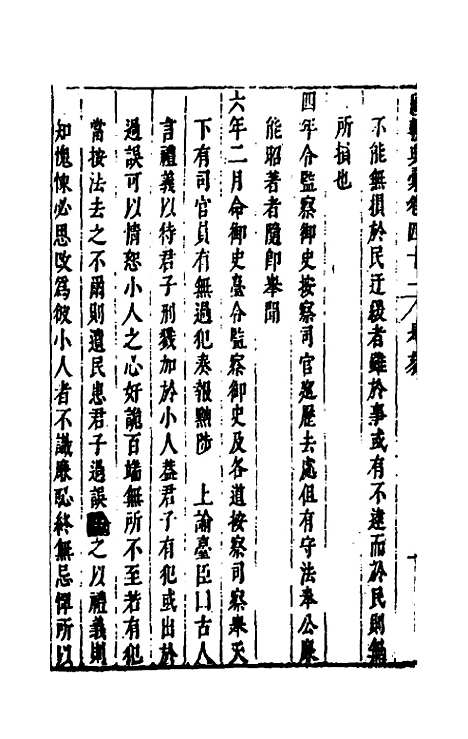 國朝典彙卷四十
不能無損於民迂緩者雖於事或有不逮而於民則無
所損也
四年令監察御史按察司官巡歷去處但有守法奉公廉
能昭著者隨卽舉聞
六年二月命御史臺令監察御史及各道按察司察舉天
下有司官員有無過犯奏報黜陟　上諭臺臣曰古人
言禮義以待君子刑戮加於小人葢君子有犯或出於
過誤可以情恕小人之心好詭百端無所不至若有犯
當按法去之不爾則遺民患君子過誤之以禮義則
知愧悚必思改爲彼小人者不識廉恥終無忌憚所以